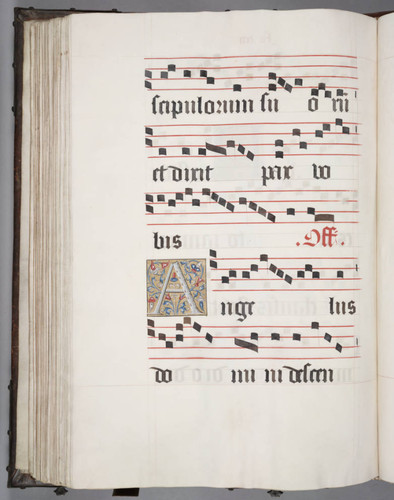 scipulorum su o rū
et dixit pax vo
bis .Off.
Ange lus
do mi ni descen